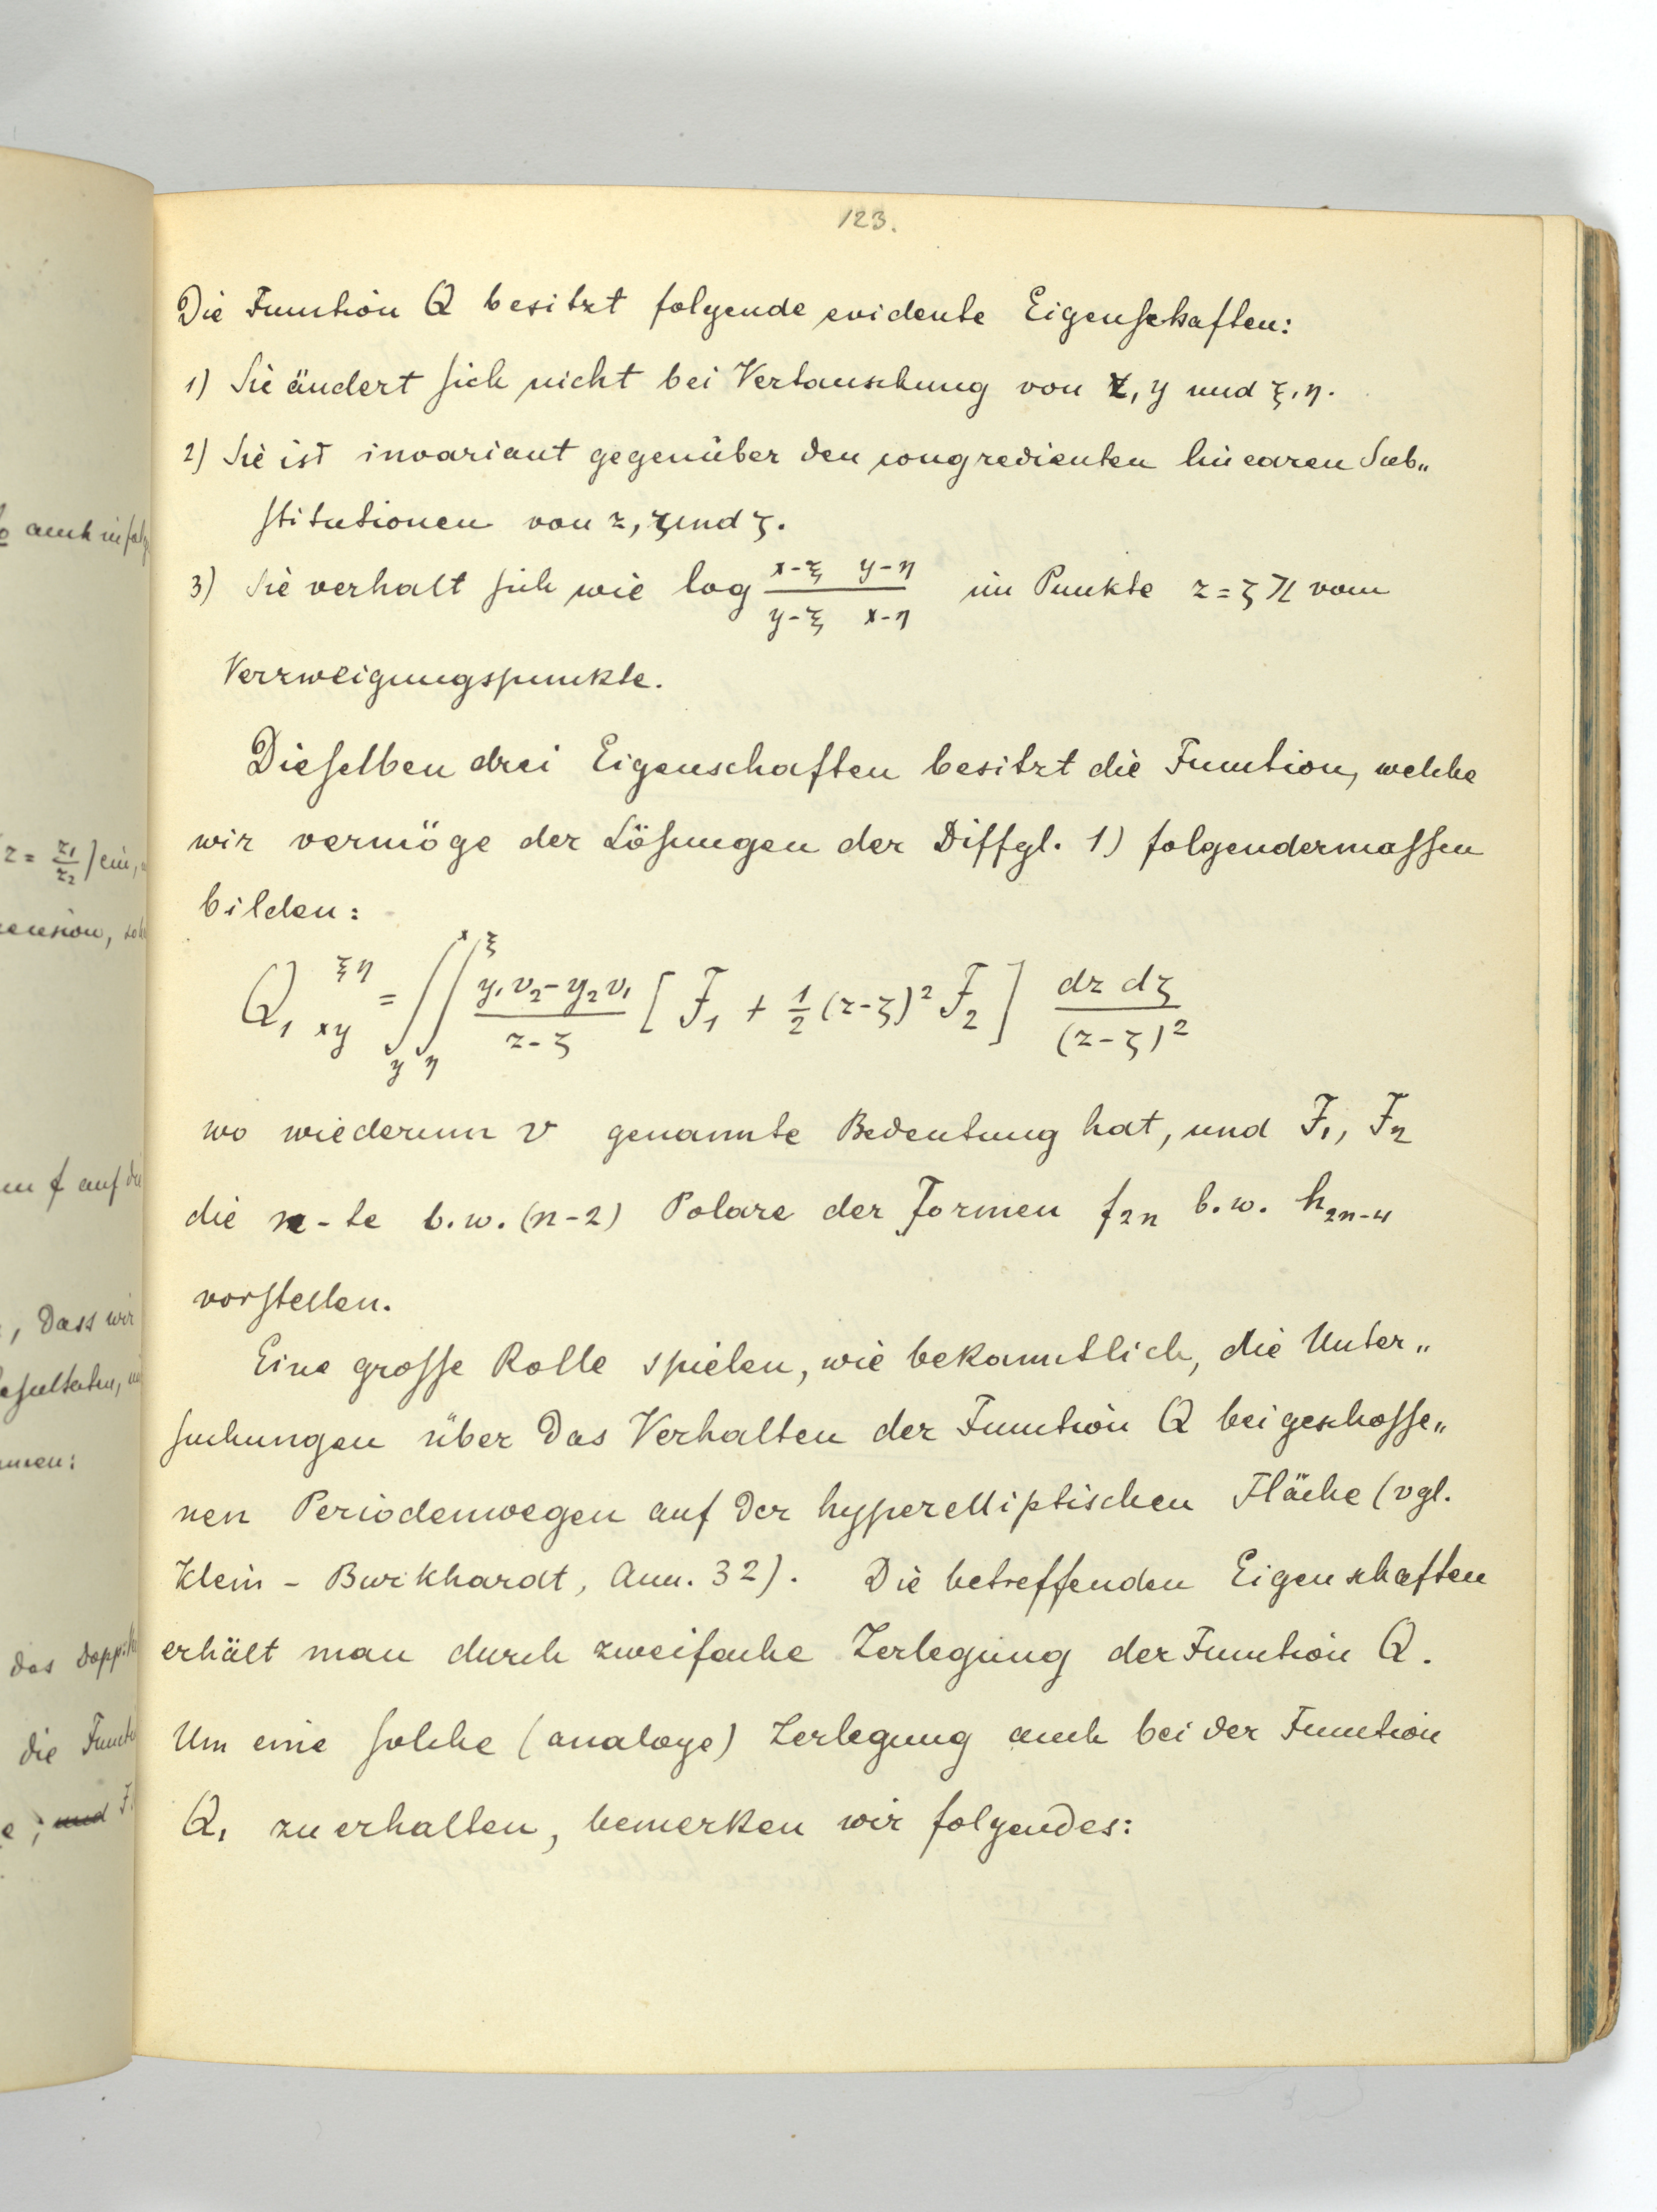 123.
Die Function Q besitzt folgende evidente Eigenschaften:
1) Sie ändert sich nicht bei Vertauschung von x, y und ξ, η.
2) Sie ist invariant gegenüber den congredienten linearen Sub„
stitutionen von z, und ζ.
3) Sie verhalt sich wie log \frac{x-ξ \; y-η}{y-ξ \; x-η} im Punkte z = ζ vom
Verzweigungspunkte.
Dieselben drei Eigenschaften besitzt die Function, welche
wir vermöge der Lösungen der Diffgl. 1) folgendermassen
bilden:
Q_{1\,xy}^{ξη} = \int_y^x \int_η^ξ \frac{y_1 v_2 - y_2 v_1}{z-ζ} [ F_1 + \frac{1}{2} (z-ζ)^2 F_2 ] \frac{dz\,dζ}{(z-ζ)^2}
wo wiederum v genannte Bedeutung hat, und F_1, F_2
die n-te b.w. (n-2) Polare der Formen f_{2n} b.w. h_{2n-4}
vorstellen.
Eine grosse Rolle spielen, wie bekanntlich, die Unter„
suchungen über das Verhalten der Function Q bei geschosse„
nen Periodenwegen auf der hyperelliptischen Fläche (vgl.
Klein - Burkhardt, Ann. 32). Die betreffenden Eigenschaften
erhält man durch zweifache Zerlegung der Function Q.
Um eine solche (analoge) Zerlegung auch bei der Function
Q_1 zu erhalten, bemerken wir folgendes:
auch in
z = \frac{z_1}{z_2}) ein,
f auf
, dass wir
das
die
; und